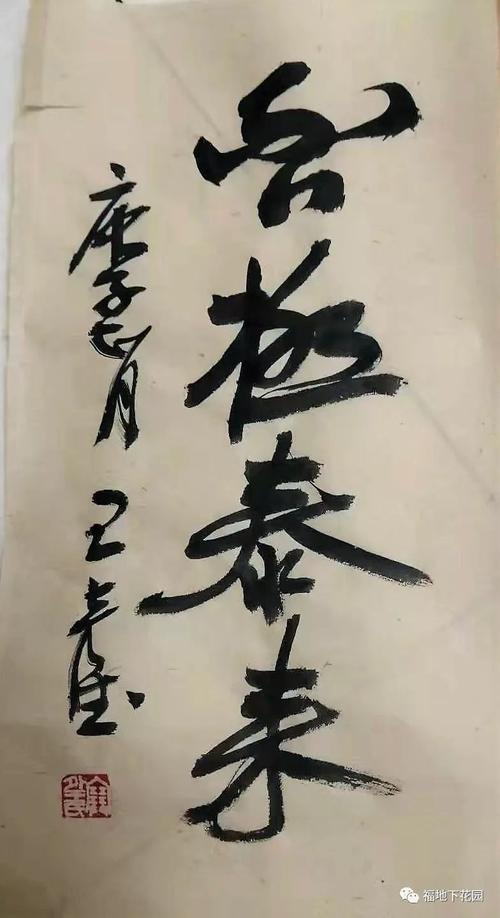 否极泰来
庚子七月 王光
福地下花园